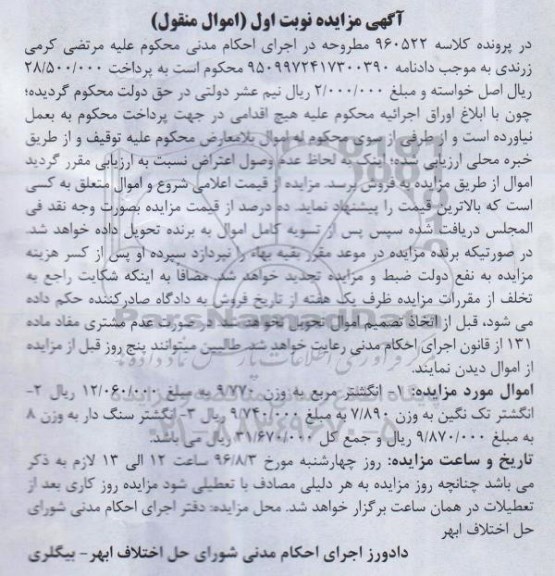 آگهی مزایده نوبت اول (اموال منقول)
در پرونده کلاسه ۹۶۰۵۲۲ مطروحه در اجرای احکام مدنی محکوم علیه مرتضی کرمی
زرندی به موجب دادنامه ۹۵۰۹۹۷۲۴۱۷۳۰۰۳۹۰ محکوم است به پرداخت ۲۸/۵۰۰/۰۰۰
ریال اصل خواسته و مبلغ ۲/۰۰۰/۰۰۰ ریال نیم عشر دولتی در حق دولت محکوم گردیده؛
چون با ابلاغ اوراق اجرائیه محکوم علیه هیچ اقدامی در جهت پرداخت محکوم به بعمل
نیاورده است و از طرفی از سوی محکوم له اموال بلامعارض محکوم علیه توقیف و از طریق
خبره محلی ارزیابی شده؛ اینک به لحاظ عدم وصول اعتراض نسبت به ارزیابی مقرر گردید
اموال از طریق مزایده به فروش برسد. مزایده از قیمت اعلامی شروع و اموال متعلق به کسی
است که بالاترین قیمت را پیشنهاد نماید. ده درصد از قیمت مزایده بصورت وجه نقد فی
المجلس دریافت شده سپس پس از تسویه کامل اموال به برنده تحویل داده خواهد شد.
در صورتیکه برنده مزایده در موعد مقرر بقیه بهاء را نپردازد سپرده او پس از کسر هزینه
مزایده به نفع دولت ضبط و مزایده تجدید خواهد شد. مضافاً به اینکه شکایت راجع به
تخلف از مقررات مزایده ظرف یک هفته از تاریخ فروش به دادگاه صادرکننده حکم داده
می شود، قبل از اتخاذ تصمیم اموال تحویل نخواهد شد در صورت عدم مشتری مفاد ماده
۱۳۱ از قانون اجرای احکام مدنی رعایت خواهد شد. طالبین میتوانند پنج روز قبل از مزایده
از اموال دیدن نمایند.
اموال مورد مزایده: ۱- انگشتر مربع به وزن ۹/۷۷۰ به مبلغ ۱۲/۰۶۰/۰۰۰ ریال ۲-
انگشتر تک نگین به وزن ۷/۸۹۰ به مبلغ ۹/۷۴۰/۰۰۰ ریال ۳- انگشتر سنگ دار به وزن ۸
به مبلغ ۹/۸۷۰/۰۰۰ ریال و جمع کل ۳۱/۶۷۰/۰۰۰ ریال می باشد.
تاریخ و ساعت مزایده: روز چهارشنبه مورخ ۹۶/۸/۳ ساعت ۱۲ الی ۱۳ لازم به ذکر
می باشد چنانچه روز مزایده به هر دلیلی مصادف با تعطیلی شود مزایده روز کاری بعد از
تعطیلات در همان ساعت برگزار خواهد شد. محل مزایده: دفتر اجرای احکام مدنی شورای
حل اختلاف ابهر
دادورز اجرای احکام مدنی شورای حل اختلاف ابهر- بیگلری
ParsNamadData
۰۲۱-۸۸۳۴۹۶۷۰-۵